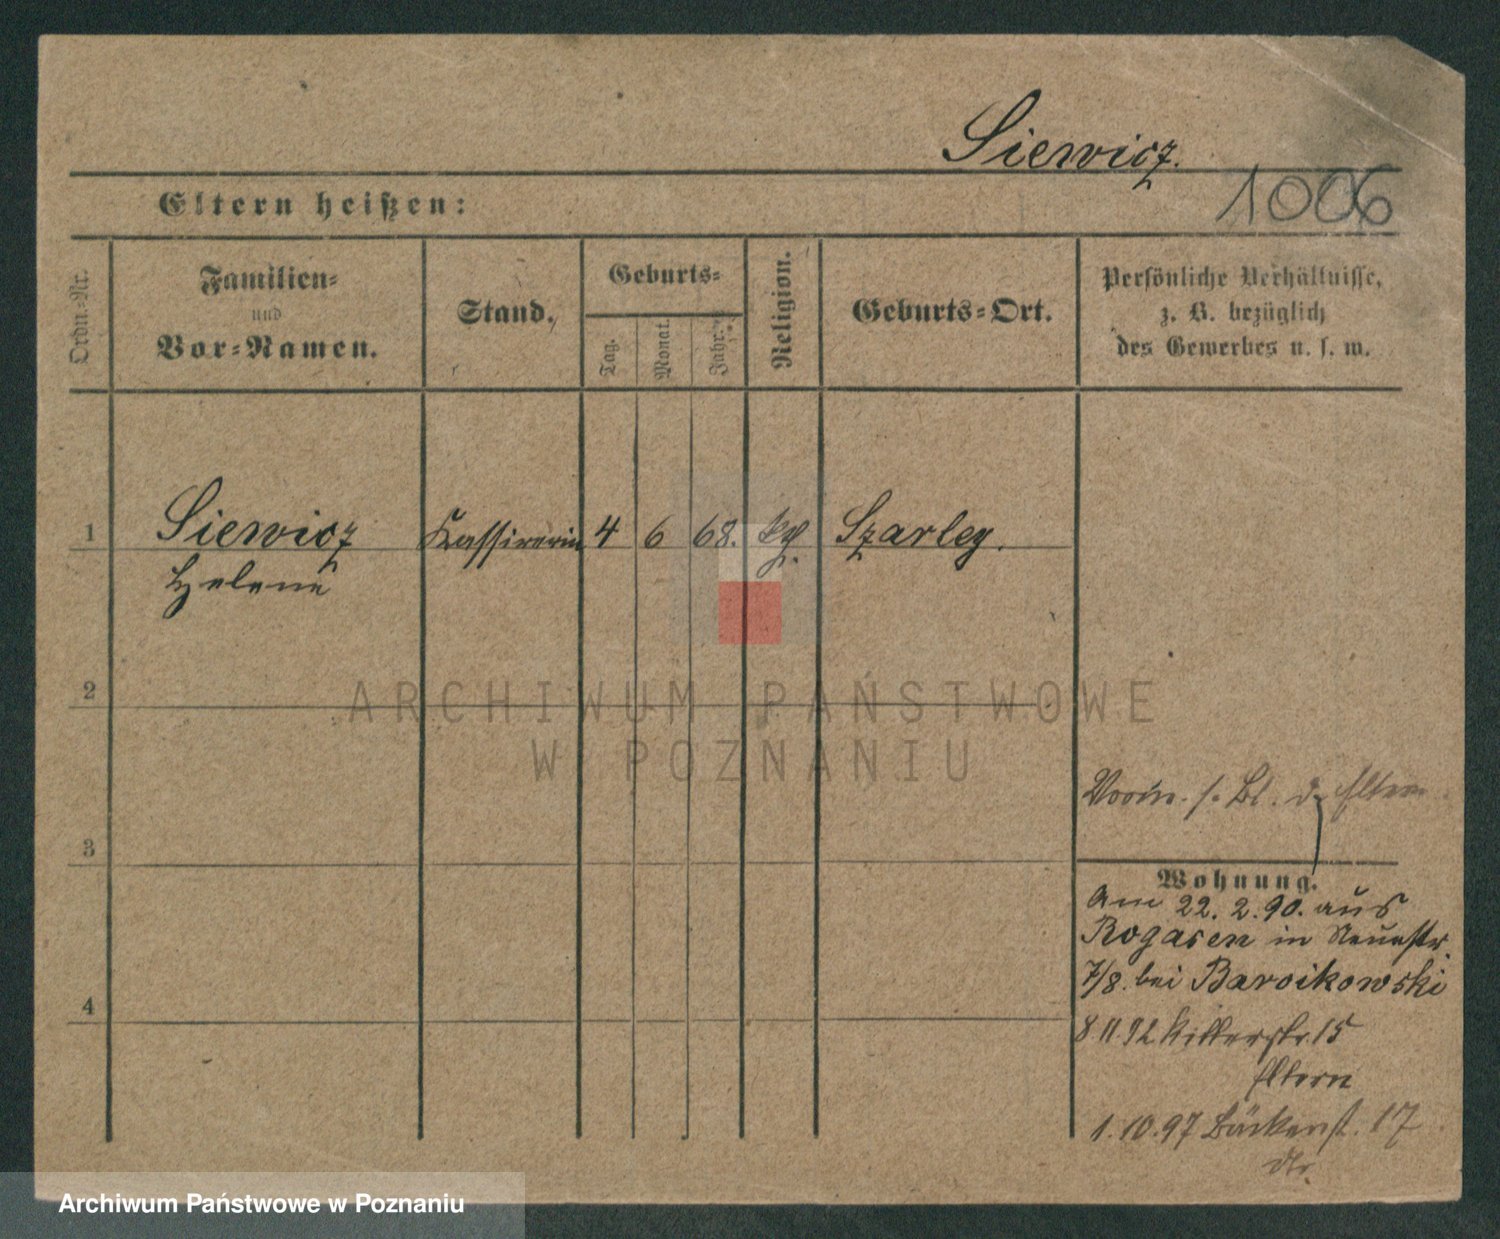 Siewicz.
1006
Eltern heißen:
Ordn.-Nr.
Familien-
und
Vor-Namen.
Stand.
Geburts-
Tag.
Monat.
Jahr.
Religion.
Geburts-Ort.
Persönliche Verhältnisse,
z. B. bezüglich
des Gewerbes u. s. w.
1 Siewicz Kassirerin 4 6 68. kth. Szarley.
Helene
2
ARCHIWUM PAŃSTWOWE
W POZNANIU
3
s. Bl. d. Eltern
Wohnung.
am 22. 2. 90. aus
Rogasen in Neuestr.
7/8. bei Baroikowski
4
8.11.92 Ritterstr. 15
Eltern
1.10.97 Bäckerst. 17
Archiwum Państwowe w Poznaniu